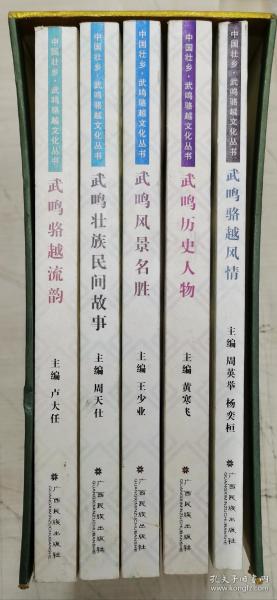 中国壮乡·武鸣骆越文化丛书
武鸣骆越流韵
主编 卢大任
广西民族出版社
GUANGXIMINZUCHUBANSHE
中国壮乡·武鸣骆越文化丛书
武鸣壮族民间故事
主编 周天仕
广西民族出版社
GUANGXIMINZUCHUBANSHE
中国壮乡·武鸣骆越文化丛书
武鸣风景名胜
主编 王少业
广西民族出版社
GUANGXIMINZUCHUBANSHE
中国壮乡·武鸣骆越文化丛书
武鸣历史人物
主编 黄寒飞
广西民族出版社
GUANGXIMINZUCHUBANSHE
中国壮乡·武鸣骆越文化丛书
武鸣骆越风情
主编 周英举 杨奕桓
广西民族出版社
GUANGXIMINZUCHUBANSHE
孔夫子旧书网